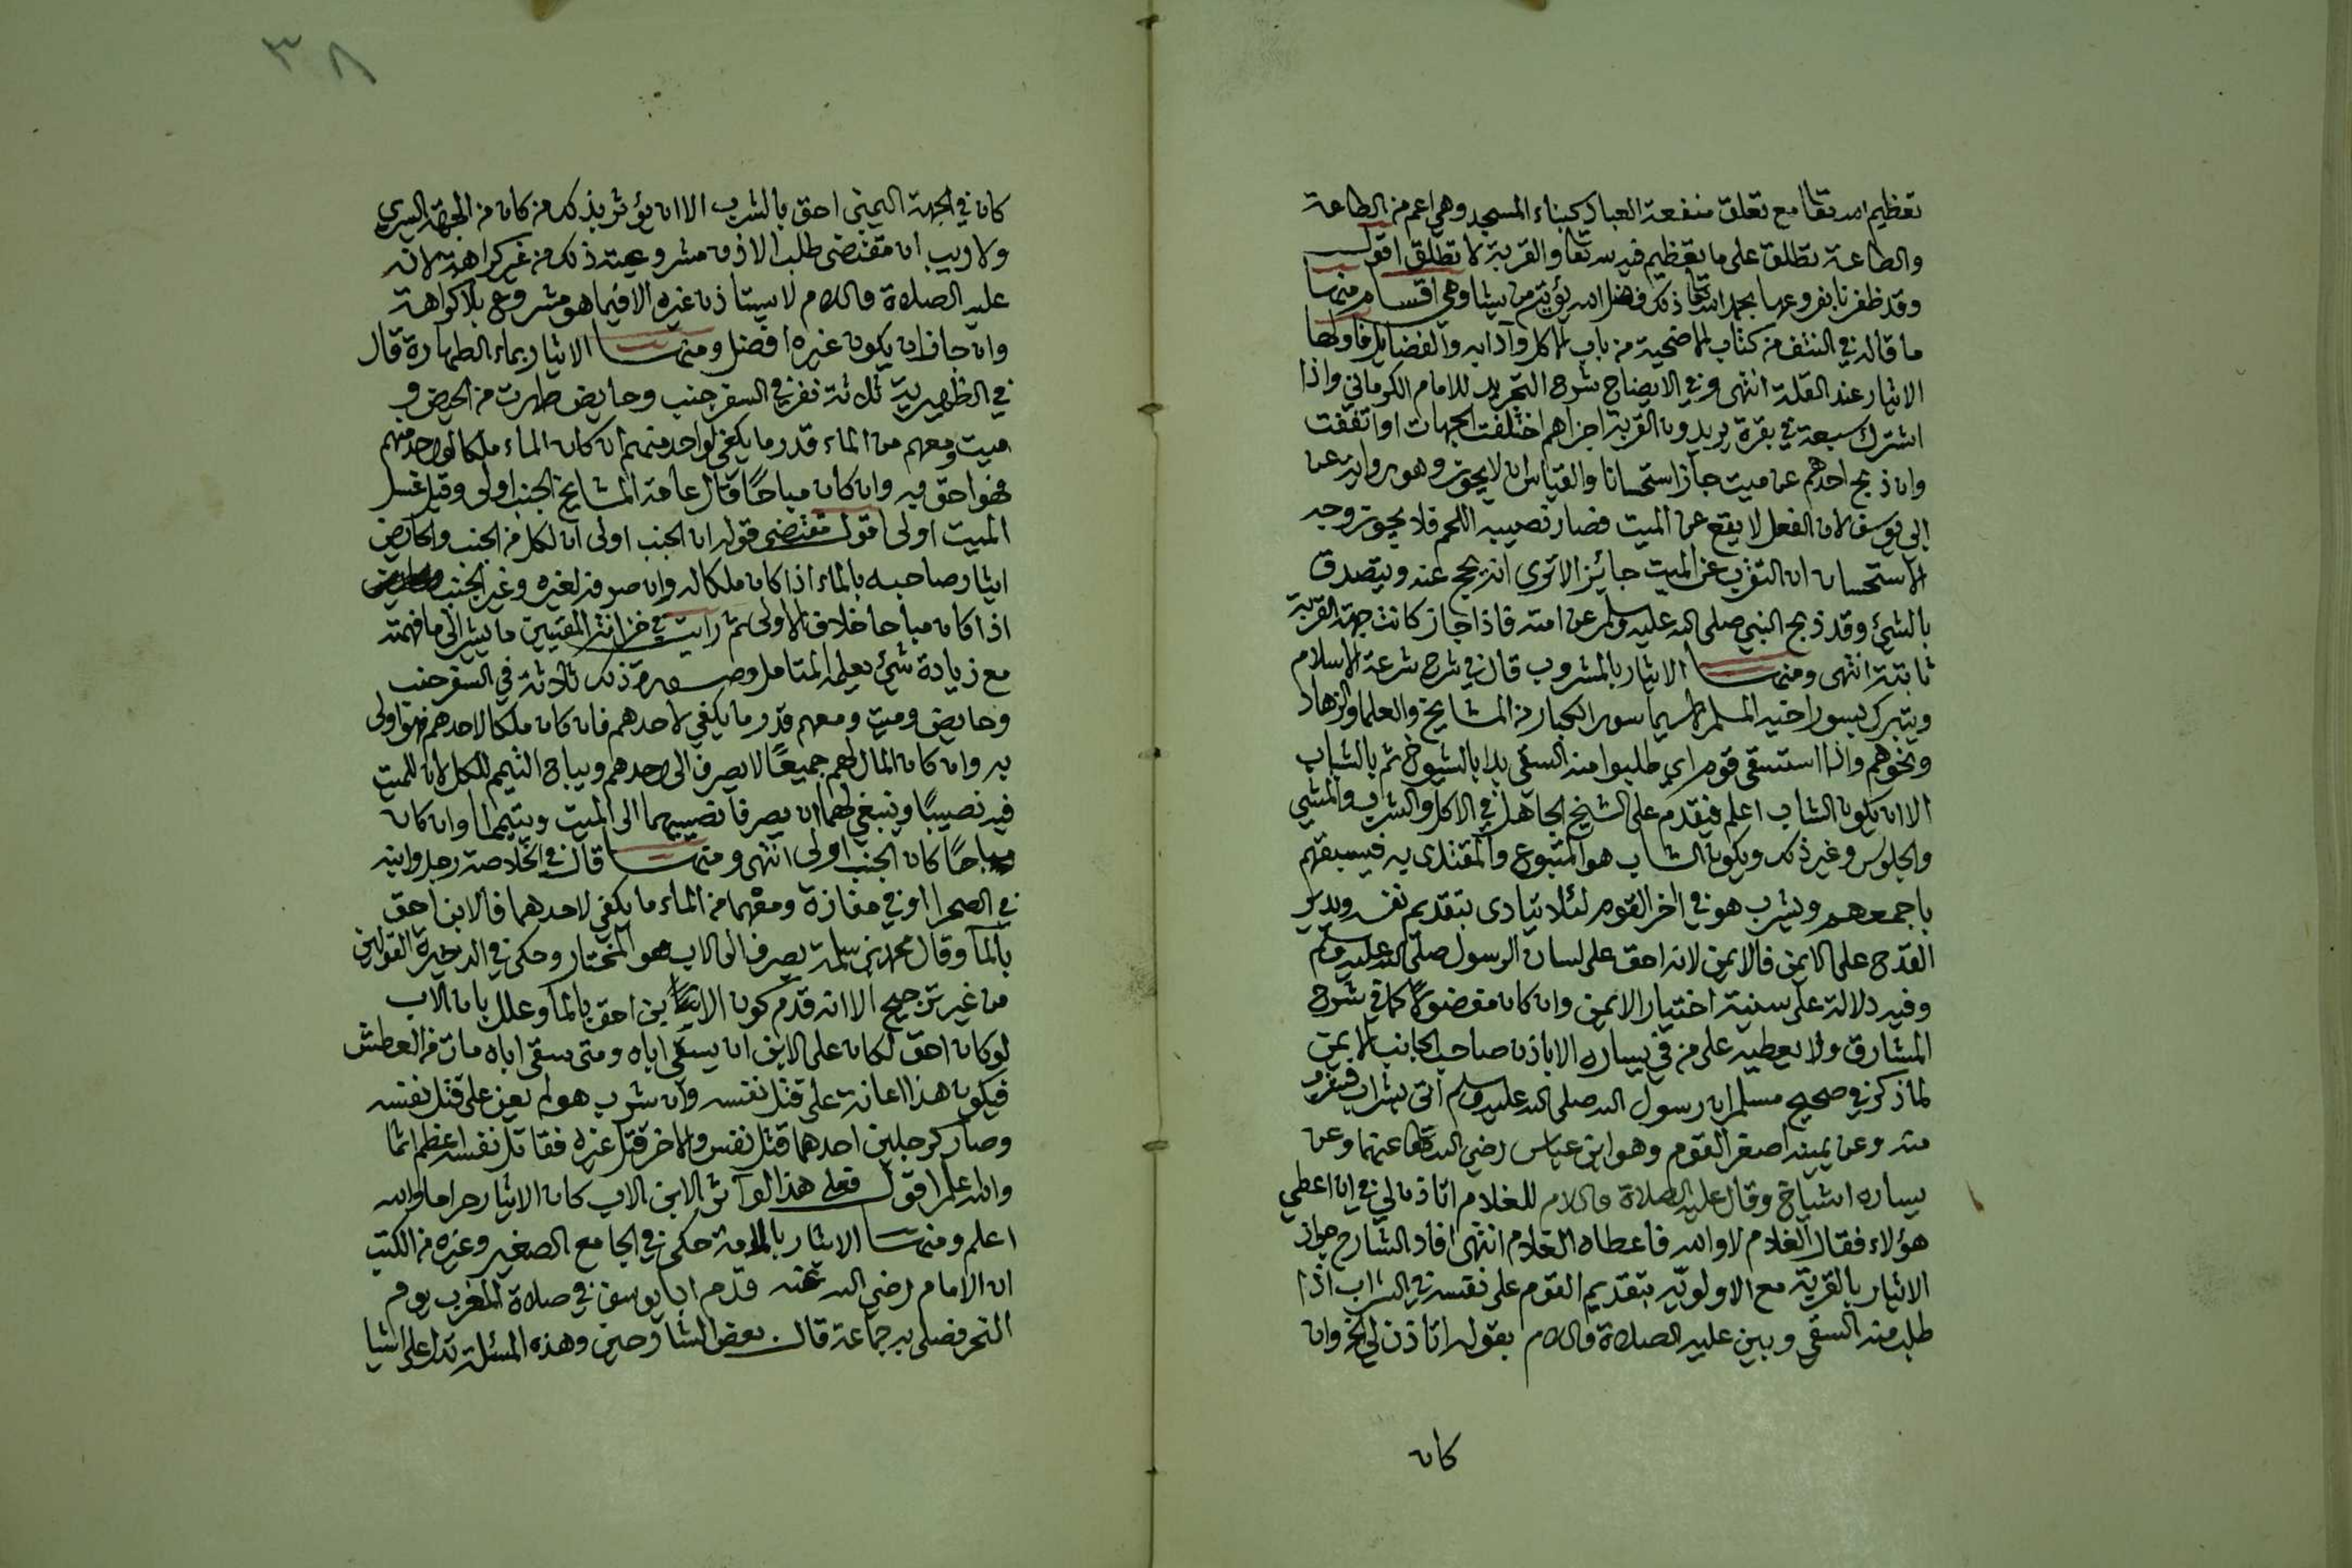 تعظيم الله تعا مع تعلق منفعة العباد كبناء المسجد وهي اعم من الطاعة
والطاعة تطلق على ما تعظيم فيه لله تعا والقربة لا تطلق اقول
وقد ظفرنا بفروعها بحمد الله تعا ذلك فضل الله يؤتيه من يشا وهي اقسام منها
ما قاله في النتف من كتاب الاضحية من باب الاكل وآدابه والفضايل فاولها
الايثار عند القلة انتهى وفي الايضاح شرح التجريد للامام الكرماني واذا
اشترك سبعة في بقرة يريدون القربة اجزاهم اختلفت الجهات او اتفقت
وان ذبح احدهم عن ميت جاز استحسانا والقياس ان لا يجوز وهو رواية عن
ابى يوسف لان الفعل لا يقع عن الميت فصار نصيبه اللحم فلا يجوز وجه
الاستحسان ان التقرب عن الميت جائز الا ترى انه يحج عنه ويتصدق
بالشئ وقد ذبح النبي صلى الله عليه وسلم عن امته فاذا جاز كانت جهة القربة
ثابتة انتهى ومنها الايثار بالمشروب قال في شرح شرعة الاسلام
ويتبرك بسور اخيه المسلم لا سيما سور الكبار من المشايخ والعلما والزهاد
ونحوهم واذا استسقى قوم اي طلبوا منه السقي بدا بالشيوخ ثم بالشباب
الا ان يكون الشاب اعلم فيقدم على الشيخ الجاهل في الاكل والشرب والمشي
والجلوس وغير ذلك ويكون الشاب هو المتبوع والمقتدى به فيسبقهم
باجمعهم ويشرب هو في اخر القوم لئلا يتادى بتقديم نفسه ويدير
القدح على الايمن فالايمن لانه احق على لسان الرسول صلى الله عليه وسلم
وفيه دلالة على سنية اختيار الايمن وان كان مفضولا كما في شرح
المشارق ولا يعطيه على من في يساره الا باذن صاحب الجانب الايمن
لما ذكر في صحيح مسلم ان رسول الله صلى الله عليه وسلم اتى بشراب فشرب
منه وعن يمينه اصغر القوم وهو ابن عباس رضي الله تعا عنهما وعن
يساره اشياخ وقال عليه الصلاة والسلام للغلام اتاذن لي في ان اعطي
هؤلاء فقال الغلام لا والله فاعطاه الغلام انتهى افاد الشارح جواز
الايثار بالقربة مع الاولوية بتقديم القوم على نفسه في الشراب اذا
طلب منه السقي وبين عليه الصلاة والسلام بقوله اتاذن لي الخ وان
كان
٣٨
كان في الجهة اليمنى احق بالشرب الا ان يؤثر بذلك من كان من الجهة اليسرى
ولا ريب ان مقتضى طلب الاذن مشروعية ذلك من غير كراهة لانه
عليه الصلاة والسلام لا يستاذن غيره الا فيما هو مشروع بلا كراهة
وان جاز ان يكون غيره افضل ومنها الايثار بماء الطهارة قال
في الظهيرية ثلاثة نفر في السفر جنب وحايض طهرت من الحيض و
ميت ومعهم من الماء قدر ما يكفي لواحد منهم ان كان الماء ملكا لواحد منهم
فهو احق به وان كان مباحًا قال عامة المشايخ الجنب اولى وقيل غسل
الميت اولى اقول مقتضى قوله ان الجنب اولى ان لكل من الجنب والحايض
ايثار صاحبه بالماء اذا كان ملكا له وان صرفه لغيره وغير الجنب
اذا كان مباحا خلاف الاولى ثم رايت في خزانة المفتيين ما يشير الى ما فهمته
مع زيادة شئ يعلمه المتامل وصورة ذلك ثلاثة في السفر جنب
وحايض وميت ومعهم قدر ما يكفي لاحدهم فان كان ملكا لاحدهم فهو اولى
به وان كان المال لهم جميعًا لا يصرف الى احدهم ويباح التيمم للكل لان للميت
فيه نصيبًا وينبغي لهما ان يصرفا نصيبهما الى الميت ويتيمما وان كان
مباحًا كان الجنب اولى انتهى ومنها قال في الخلاصة رجل وابنه
في الصحرا او في مفازة ومعهما من الماء ما يكفي لاحدهما فالابن احق
بالمآ وقال محمد بن سلمة يصرف الى الاب هو المختار وحكى في الذخيرة القولين
من غير ترجيح الا انه قدم كون الابن احق بالمآ وعلل بان الاب
لو كان احق لكان على الابن ان يسقي اباه ومتى سقى اباه مات من العطش
فيكون هذا اعانة على قتل نفسه وان شرب هو لم يعن على قتل نفسه
وصار كرجلين احدهما قتل نفسه والاخر قتل غيره فقاتل نفسه اعظم اثما
والله اعلم اقول فعلى هذا لو آثر الابن الاب كان الايثار حراما والله
اعلم ومنها الايثار بالامامة حكى في الجامع الصغير وغيره من الكتب
ان الامام رضي الله عنه قدم ابا يوسف في صلاة المغرب يوم
النحر فصلى به جماعة قال بعض الشارحين وهذه المسئلة تدل على اشيا